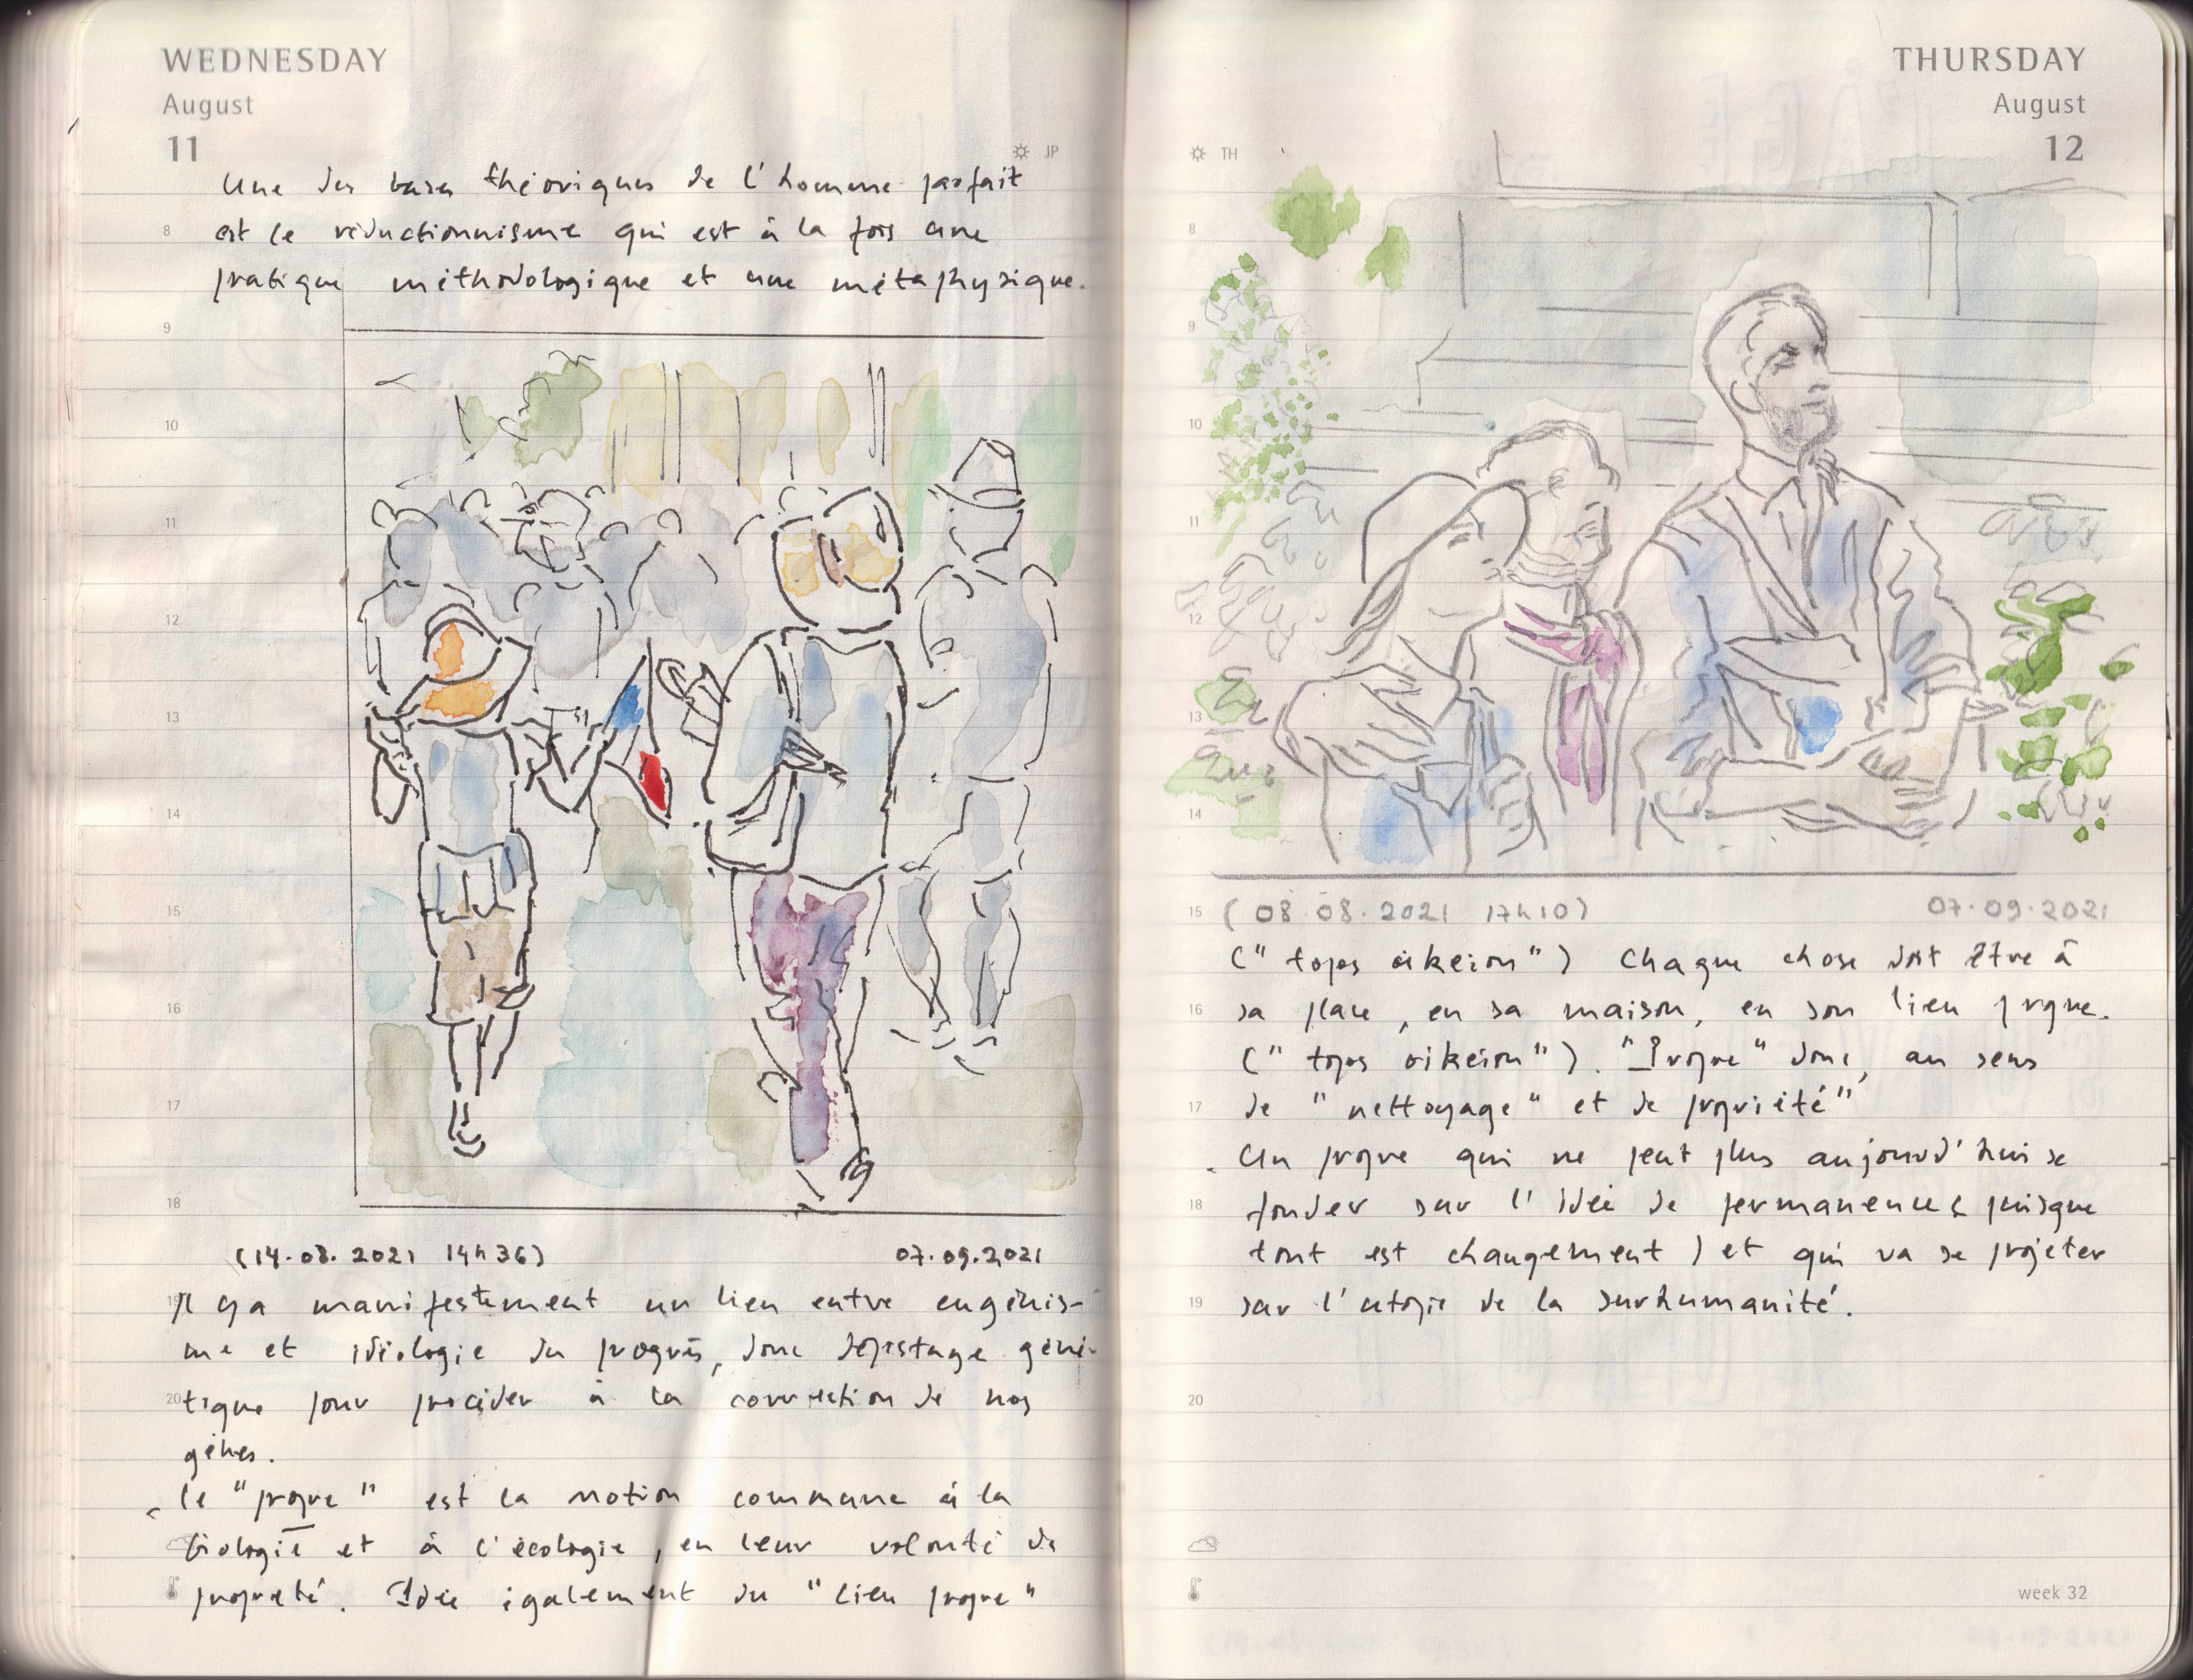 WEDNESDAY
August
11
JP
Une des bases théoriques de l'homme parfait
8
est le réductionnisme qui est à la fois une
pratique méthodologique et une métaphysique.
9
10
11
12
13
14
15
16
17
18
(14.08.2021 14h36) 07.09.2021
19
Il y a manifestement un lien entre eugénis-
me et idéologie du progrès, donc dépistage géné-
20
tique pour procéder à la correction de nos
gènes.
Le "propre" est la notion commune à la
biologie et à l'écologie, en leur volonté de
propreté. Idée également du "lieu propre"
THURSDAY
August
12
TH
8
9
10
11
12
13
14
15
(08.08.2021 17h10) 07.09.2021
("topos oikeion") Chaque chose doit être à
16
sa place, en sa maison, en son lieu propre.
("topos oikeion"). "Propre" donc, au sens
17
de "nettoyage" et de propriété"
Un propre qui ne peut plus aujourd'hui se
18
fonder sur l'idée de permanence (puisque
tout est changement) et qui va se projeter
19
sur l'utopie de la surhumanité.
20
week 32